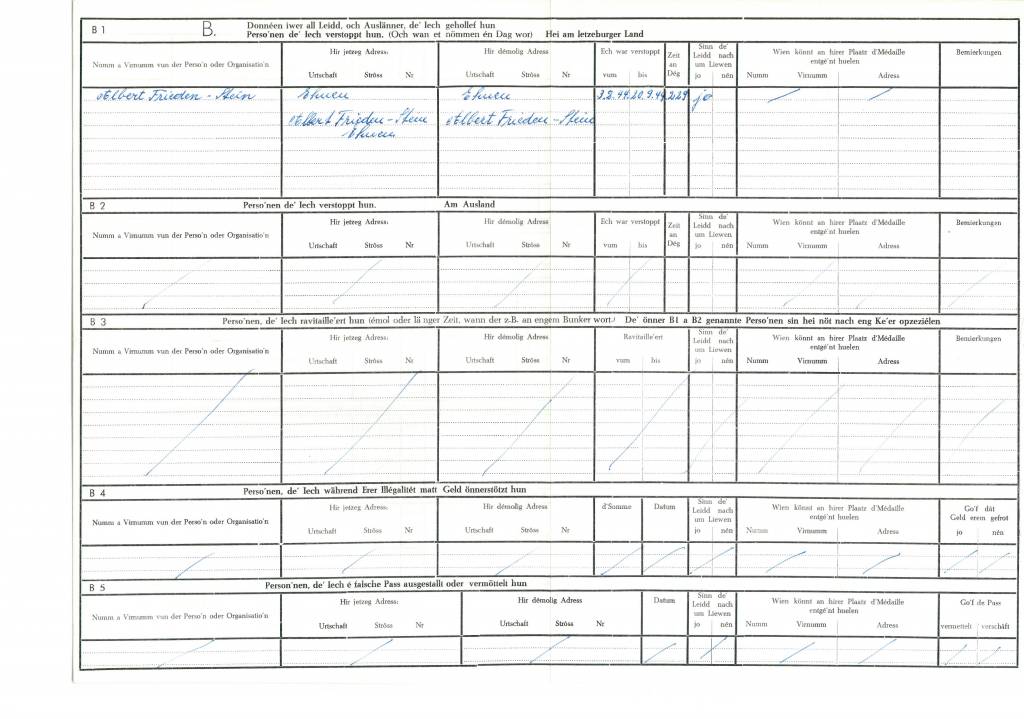 B 1 B. Donnéen iwer all Leidd, och Auslänner, de' Iech gehollef hun
Perso'nen de' Iech verstoppt hun. (Och wan et nömmen én Dag wor) Hei am letzeburger Land
Numm a Virnumm vun der Perso'n oder Organisatio'n
Hir jetzeg Adress:
Urtschaft Ströss Nr
Hir démolig Adress
Urtschaft Ströss Nr
Ech war verstoppt
vum bis
Zeit an Dég
Sinn de' Leidd nach um Liewen
jo nén
Wien könnt an hirer Plaatz d'Médaille entgé'nt huelen
Numm Virnumm Adress
Bemierkungen
Albert Frieden - Stein Ehnen Ehnen 3.2.44 20.9.44 229 jo
Albert Frieden - Stein Albert Frieden - Stein
Ehnen
B 2 Perso'nen de' Iech verstoppt hun. Am Ausland
Numm a Virnumm vun der Perso'n oder Organisatio'n
Hir jetzeg Adress:
Urtschaft Ströss Nr
Hir démolig Adress
Urtschaft Ströss Nr
Ech war verstoppt
vum bis
Zeit an Dég
Sinn de' Leidd nach um Liewen
jo nén
Wien könnt an hirer Plaatz d'Médaille entgé'nt huelen
Numm Virnumm Adress
Bemierkungen
B 3 Perso'nen, de' Iech ravitaille'ert hun (émol oder länger Zeit, wann der z.B. an engem Bunker wort.) De' önner B1 a B2 genannte Perso'nen sin hei nöt nach eng Ke'er opzeziélen
Numm a Virnumm vun der Perso'n oder Organisatio'n
Hir jetzeg Adress:
Urtschaft Ströss Nr
Hir démolig Adress
Urtschaft Ströss Nr
Ravitaille'ert
vum bis
Sinn de' Leidd nach um Liewen
jo nén
Wien könnt an hirer Plaatz d'Médaille entgé'nt huelen
Numm Virnumm Adress
Bemierkungen
B 4 Perso'nen, de' Iech während Erer Illégalitét matt Geld önnerstötzt hun
Numm a Virnumm vun der Perso'n oder Organisatio'n
Hir jetzeg Adress:
Urtschaft Ströss Nr
Hir démolig Adress
Urtschaft Ströss Nr
d'Somme
Datum
Sinn de' Leidd nach um Liewen
jo nén
Wien könnt an hirer Plaatz d'Médaille entgé'nt huelen
Numm Virnumm Adress
Go'f dât Geld erem gefrot
jo nén
B 5 Person'nen, de' Iech é falsche Pass ausgestallt oder vermöttelt hun
Numm a Virnumm vun der Perso'n oder Organisatio'n
Hir jetzeg Adress:
Urtschaft Ströss Nr
Hir démolig Adress
Urtschaft Ströss Nr
Datum
Sinn de' Leidd nach um Liewen
jo nén
Wien könnt an hirer Plaatz d'Médaille entgé'nt huelen
Numm Virnumm Adress
Go'f de Pass
vermettelt verschâft